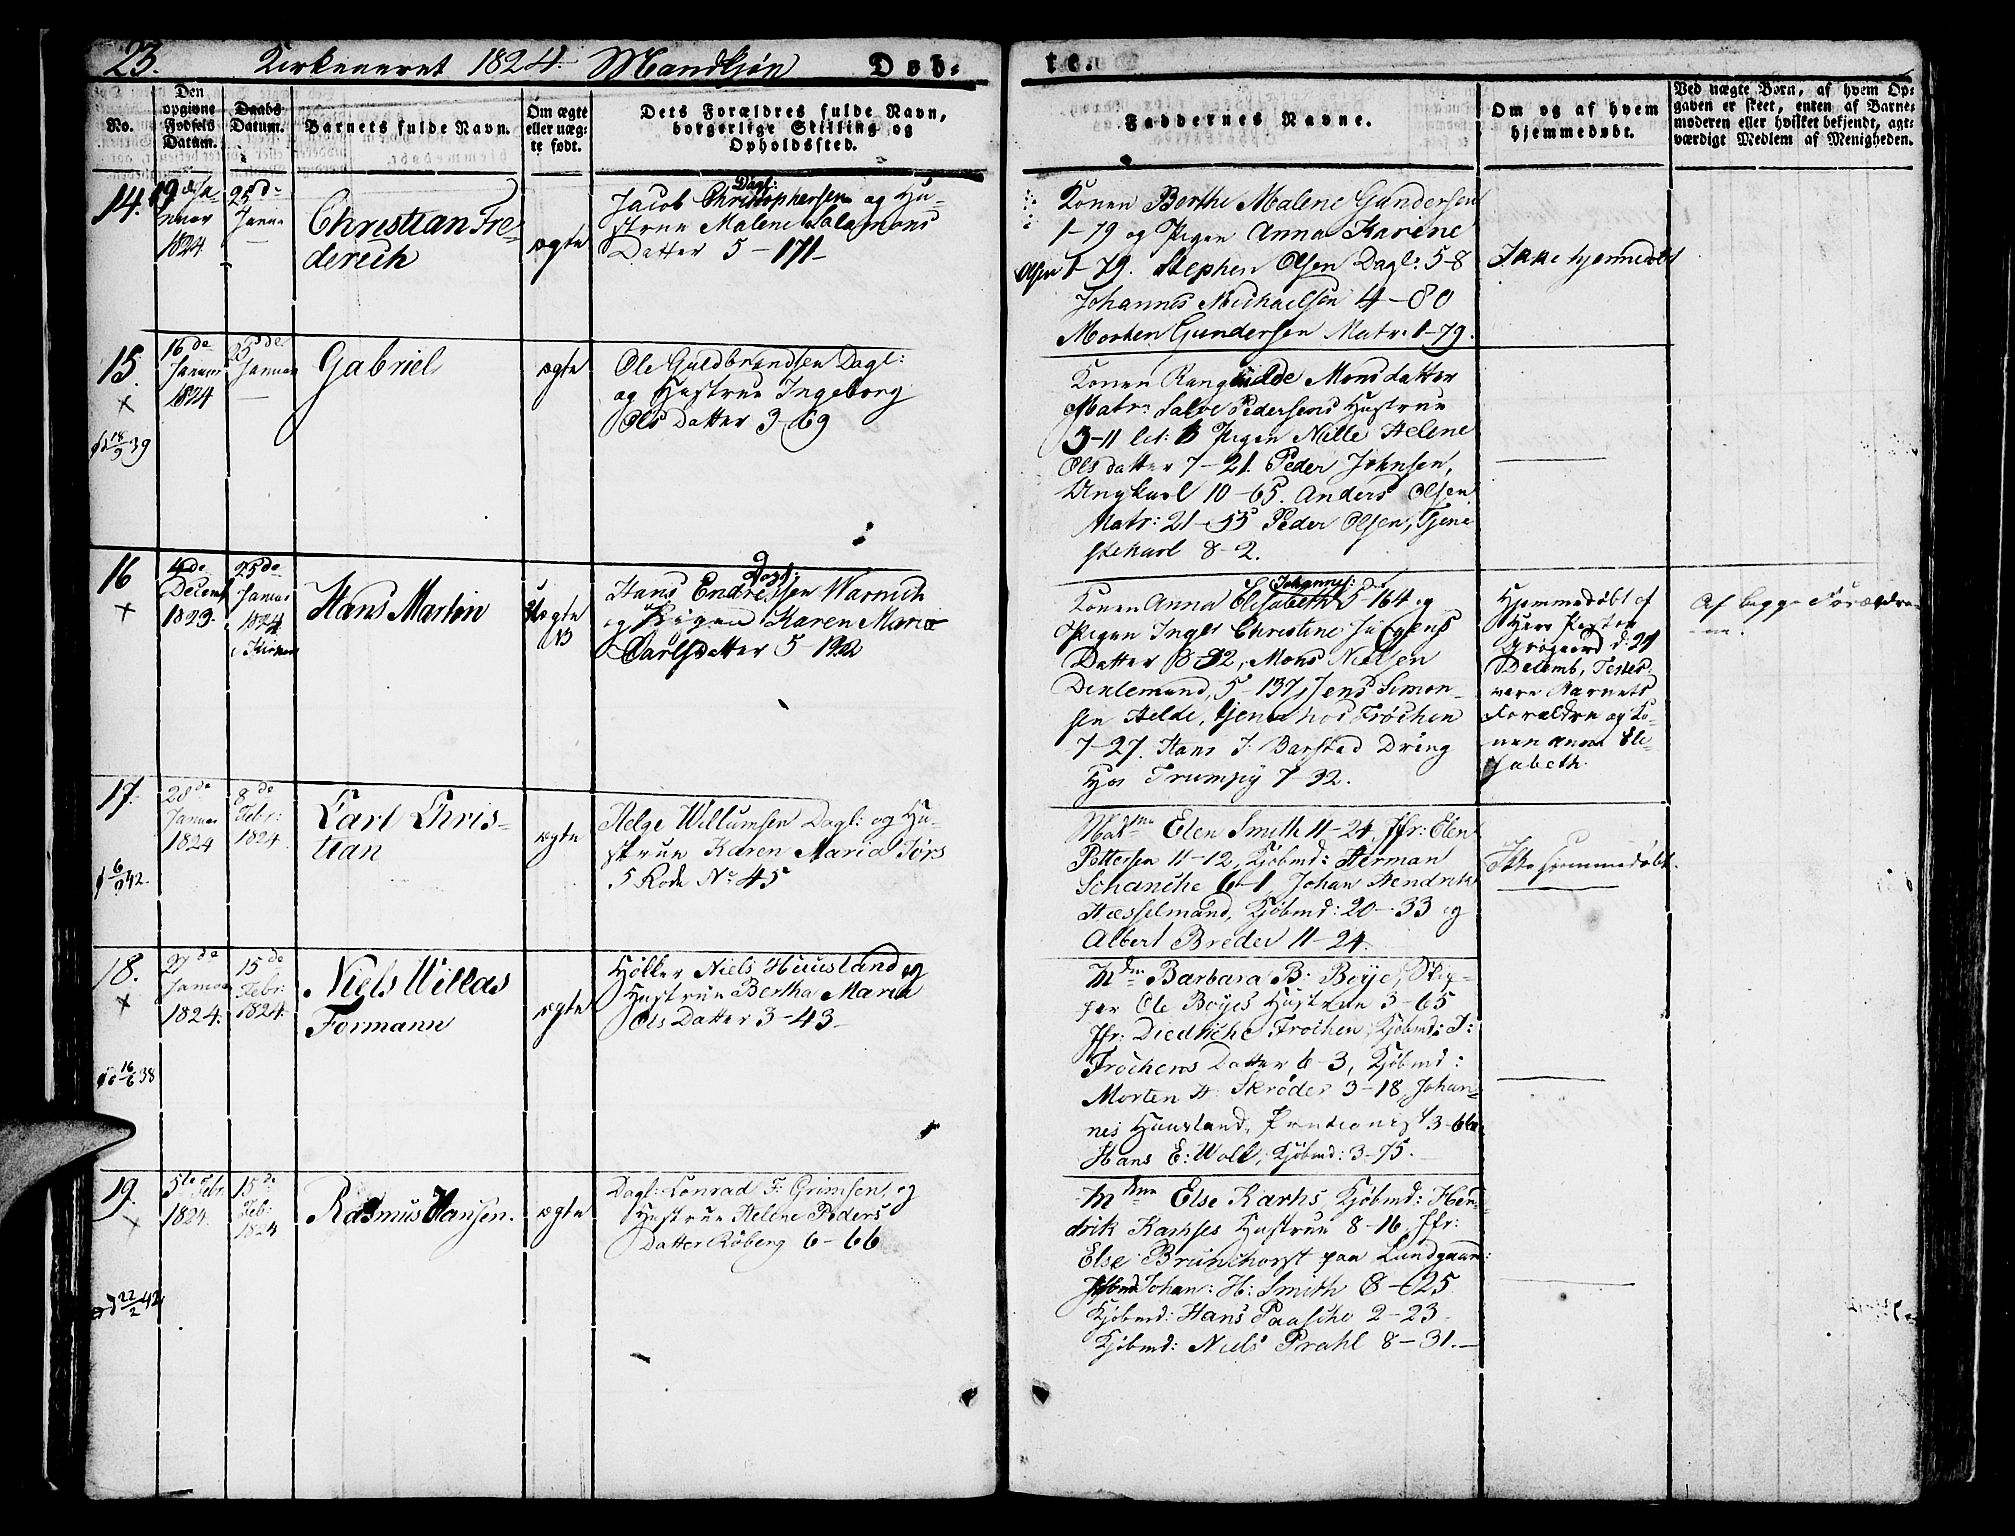 23. Kirkeaaret 1824. Mandkjøn Døb-
te.
No.
Den opgivne Fødsels Datum.
Daabs Datum.
Barnets fulde Navn.
Om ægte eller uægte født.
Dets Forældres fulde Navn, borgerlige Stilling og Opholdssted.
Faddernes Navne.
Om og af hvem hjemmedøbt.
Ved uægte Børn, af hvem Opgaven er skeet, enten af Barnemoderen eller hvilket bekjendt, agtværdigt Medlem af Menigheden.
14.
19de Ja-
nuar
1824
25de
Janua
Christian Fre-
derich
ægte
Dagl:
Jacob Christophersen og Hu-
strue Malene Salamons
Datter 5-171-
Konen Berthe Malene Gundersen
1-79 og Pigen Anna Karine
Olsen 1-79. Stephen Olsen Dagl: 5-8
Johannes Michaelsen 4-80
Morten Gundersen Matr: 1-79.
Ikke hjemmedøbt
15.
16de
Januar
1824
25de
Januar
d 18/9 39
Gabriel
ægte
Ole Guldbrandsen Dagl:
og Hustrue Ingeborg
Ols Datter 3-69
Konen Rangnilde Monsdatter
Matr: Salve Pedersens Hustrue
3-11 lit: b Pigen Nille Helene
Olsdatter 7-21. Peder Johnsen,
Ungkarl 10-65. Anders Olsen
Matr: 21-55 Peder Olsen, Tjene
stekarl 8-2.
16
4de
Decemb
1823.
25de
Januar
1824
i Kirken
Hans Martin
Uægte
13
Hans Endressen Warnich
og Pigen Karen Marie
Carlsdatter 5-192
Johannes:
Konen Anna Elisabeth 5-164 og
Pigen Inger Christine Jürgens
Datter 8-32, Mons Nielsen
Denlemand, 5-137, Jens Simon-
sen Helde, tjener hos Frøchen
7-27. Hans J. Barstad Dreng
Hos Trumpy 7-32.
Hjemmedøbt af
Herr Pastor
Grøgaard d. 21
Decemb, Testes
vare Barnets
Forældre og Ko-
nen Anna Eli-
sabeth.
Af begge Forældre-
ne.
17.
28de
Januar
1824
8de
Febr:
1824
d 6/9 42.
Carl Chris-
tian
ægte
Helge Willumsen Dagl: og Hu-
strue Karen Maria Førs
5 Rode No 45
Madme Elen Smith 11-24, Jfr: Elen
Pettersen 11-12, Kjøbmd: Herman
Schanche 6-1, Johan Hendrik
Hesselmand, Kjøbmd: 20-33 og
Albert Breder 11-24.
Ikke hjemmedøbt.
18.
27de
Januar
1824.
15de
Febr:
1824.
d 16/6 38
Niels Willas
Formann
ægte
Høkker Niels Huusland og
Hustrue Bertha Maria
Ols Datter 3-43-
Mdm Barbara B: Boye, Skip-
per Ole Boyes Hustrue 3-65
Jfr: Diedriche Frøchen, Kjøbmd: J:
Frøchens Datter 6-3, Kjøbmd:
Morten H. Skrøder 3-18, Johan-
nes Huusland, 3-66
Hans E: Woll, Kjøbmd: 3-75.
19.
5te Febr
1824.
15de
Feb:
1824
d 22/2 42
Rasmus Hansen.
ægte
Dagl: Conrad F: Grimsen, og
Hustrue Helene Peders
Datter Roberg 6-66
Mdme Else Karhs Kjøbmd: Hen-
drik Hustrue 8-16, Jfr:
Else Brunchorst paa Lundgaard:
Kjøbmd Johan: H: Smith 8-25
Kjøbmd: Hans Paasche 2-23.
Kjøbmd: Niels Prahl 8-31.-